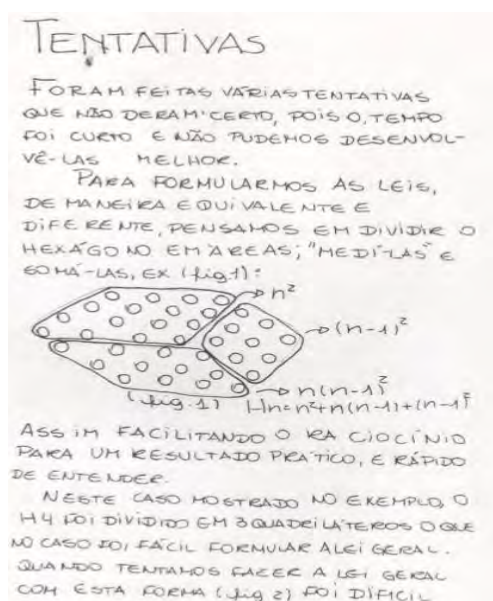 TENTATIVAS
FORAM FEITAS VÁRIAS TENTATIVAS
QUE NÃO DERAM CERTO, POIS O TEMPO
FOI CURTO E NÃO PUDEMOS DESENVOL-
VÊ-LAS MELHOR.
PARA FORMULARMOS AS LEIS,
DE MANEIRA EQUIVALENTE E
DIFERENTE, PENSAMOS EM DIVIDIR O
HEXÁGONO EM ÁREAS; "MEDÍ-LAS" E
SOMÁ-LAS, EX (fig 1):
→ n²
→ (n-1)²
→ n(n-1)²
(fig. 1) Hn=n²+n(n-1)+(n-1)²
ASSIM FACILITANDO O RACIOCÍNIO
PARA UM RESULTADO PRÁTICO, E RÁPIDO
DE ENTENDER.
NESTE CASO MOSTRADO NO EXEMPLO, O
H4 FOI DIVIDIDO EM 3 QUADRILÁTEROS O QUE
NO CASO FOI FÁCIL FORMULAR A LEI GERAL.
QUANDO TENTAMOS FAZER A LEI GERAL
COM ESTA FORMA (fig 2) FOI DIFÍCIL